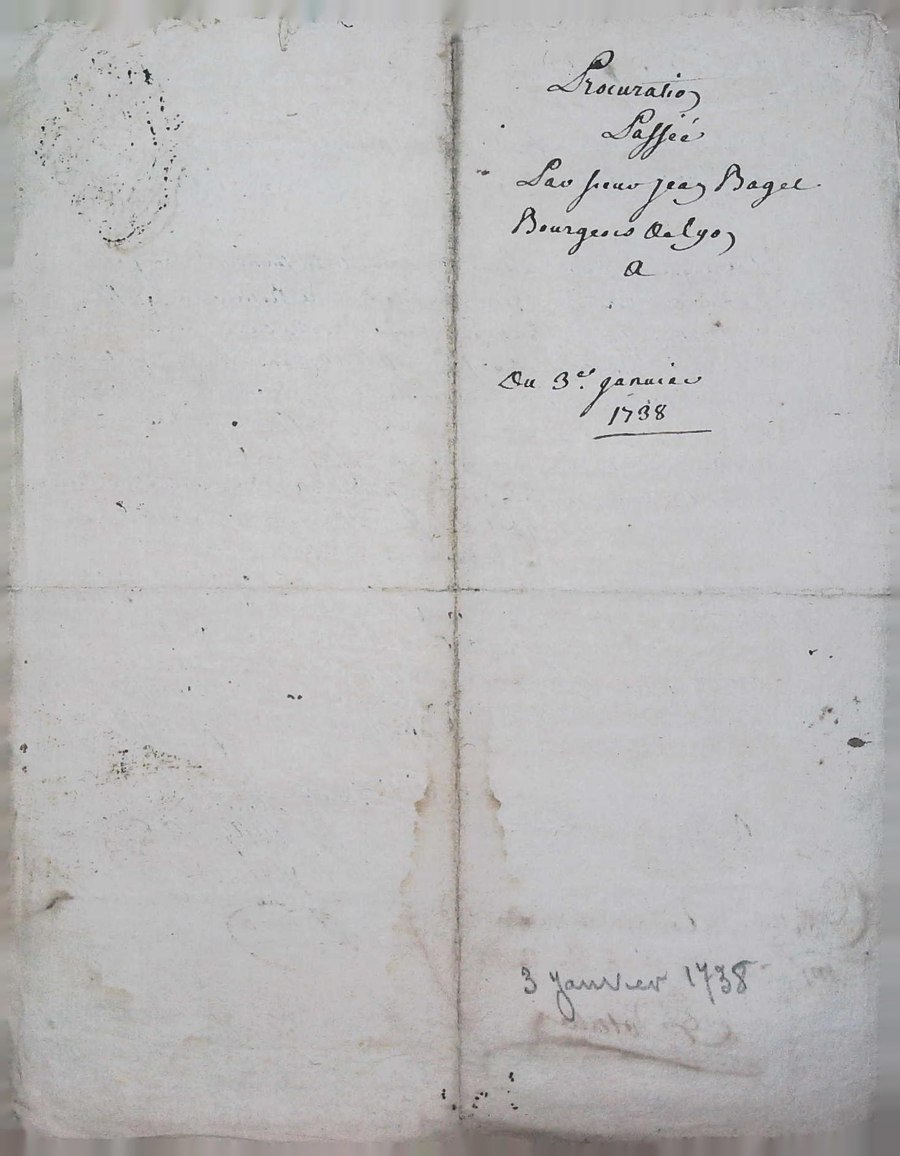 Procuration
Passéé
Par sieur jean Bagel
Bourgeois de lyon
a
Du 3e. janvier
1738
3 janvier 1738